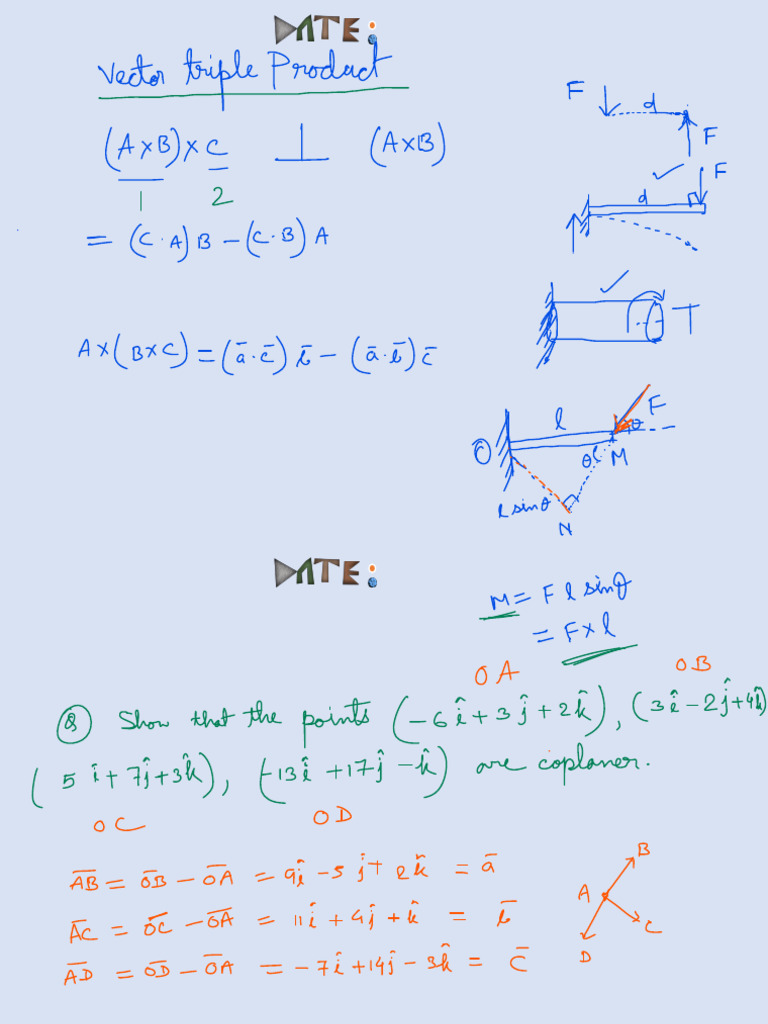 DATE:
Vector triple Product
(A×B)×C ⊥ (A×B)
1 2
= (C·A) B - (C·B) A
A×(B×C) = (ā·c̄) b̄ - (ā·b̄) c̄
F d F
F d
T
l F θ
O θ M
l sinθ
N
DATE:
M = F l sinθ
= F×l
OA OB
Q Show that the points (-6î+3ĵ+2k̂), (3î-2ĵ+4k̂)
(5î+7ĵ+3k̂), (-13î+17ĵ-k̂) are coplaner.
OC OD
A̅B̅ = O̅B̅ - O̅A̅ = 9î-5ĵ+2k̂ = ā
A̅C̅ = O̅C̅ - O̅A̅ = 11î+4ĵ+k̂ = b̄
A̅D̅ = O̅D̅ - O̅A̅ = -7î+14ĵ-3k̂ = c̄
B
A
C
D